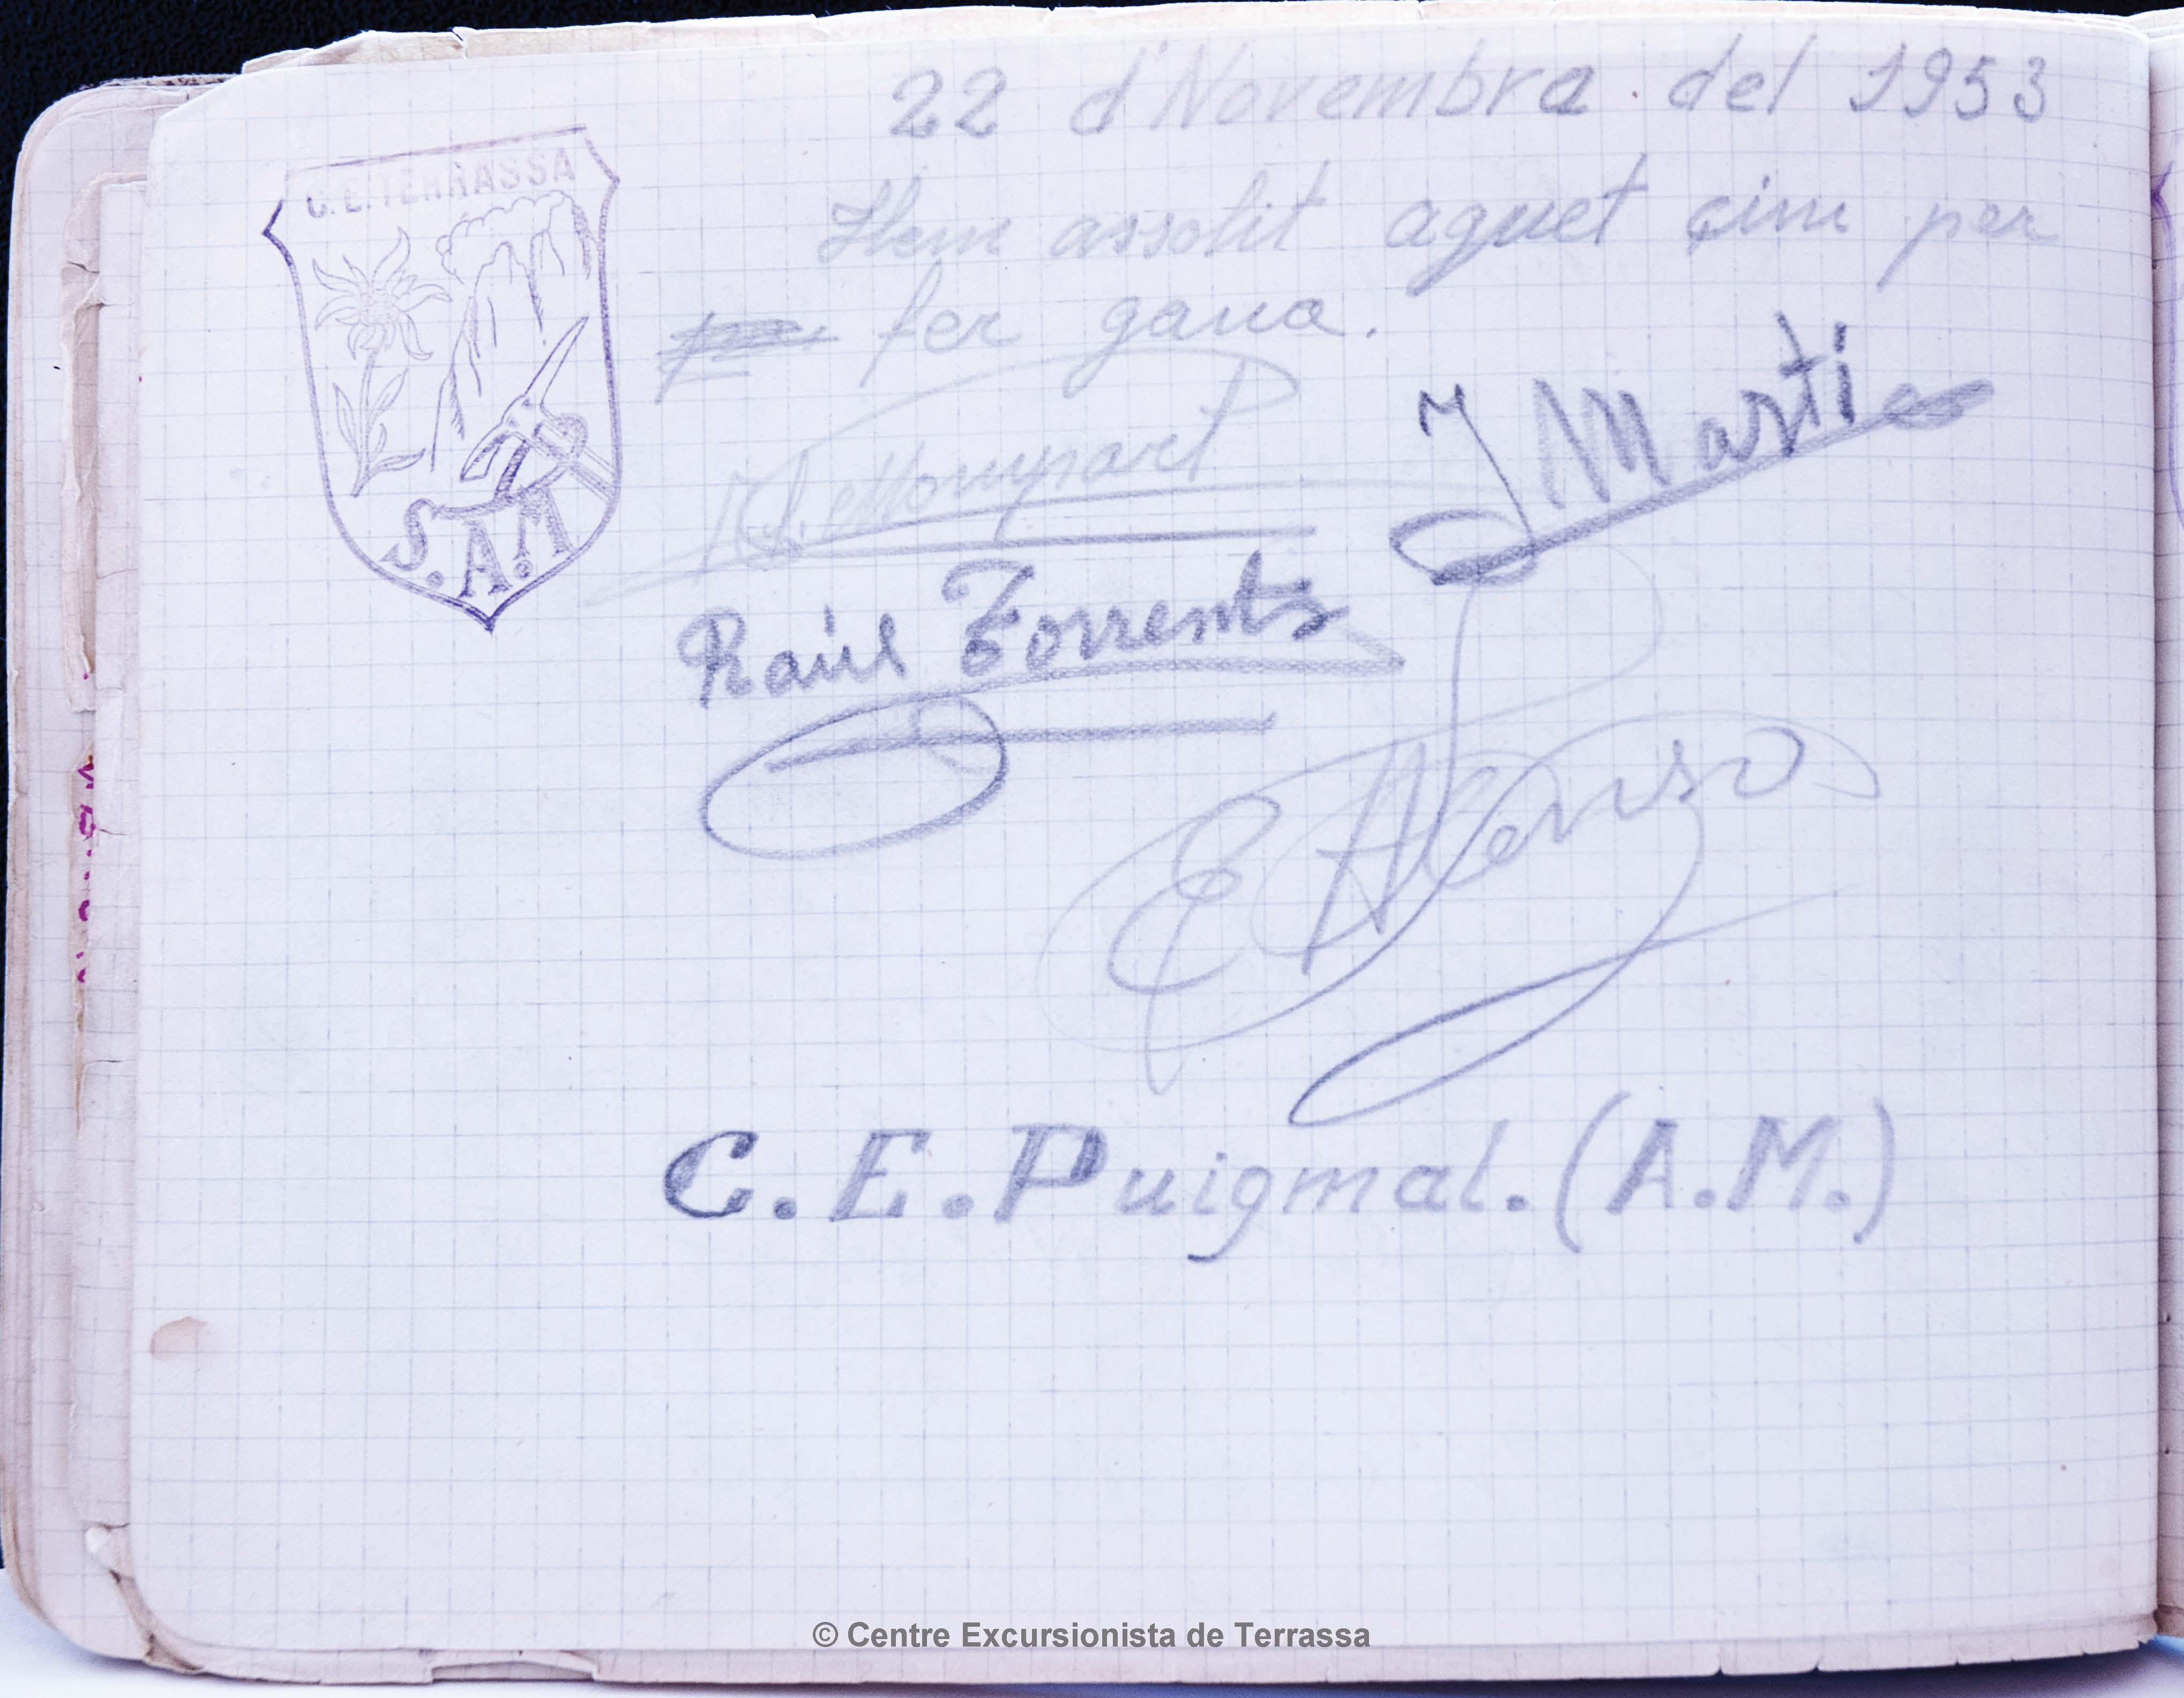 22 d'Novembra del 1953
Hem assolit aquet cim per
fer gana.
C.E.TERRASSA
S.A.M
Mompart
J Marti
Raúl Torrents
E Alonso
C.E.Puigmal.(A.M.)
© Centre Excursionista de Terrassa